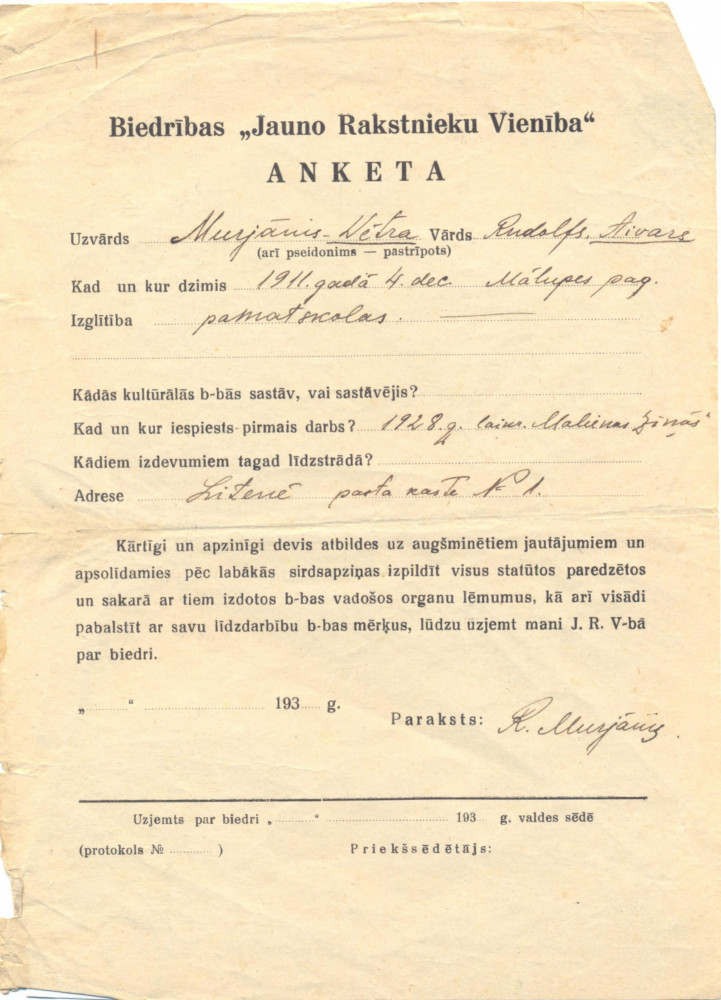 Biedrības „Jauno Rakstnieku Vienība“
ANKETA
Uzvārds Murjānis-Vētra Vārds Rudolfs, Aivars
(arī pseidonims — pastrīpots)
Kad un kur dzimis 1911. gadā 4. dec. Mālupes pag.
Izglītība pamatskolas. —
Kādās kultūrālās b-bās sastāv, vai sastāvējis?
Kad un kur iespiests pirmais darbs? 1928. g. laikr. Malienas Ziņās"
Kādiem izdevumiem tagad līdzstrādā?
Adrese Litenē pasta kaste № 1.
Kārtīgi un apzinīgi devis atbildes uz augšminētiem jautājumiem un
apsolīdamies pēc labākās sirdsapziņas izpildīt visus statūtos paredzētos
un sakarā ar tiem izdotos b-bas vadošos organu lēmumus, kā arī visādi
pabalstīt ar savu līdzdarbību b-bas mērķus, lūdzu uzjemt mani J. R. V-bā
par biedri.
„ “ 193 g.
Paraksts: R. Murjānis.
Uzjemts par biedri „ “ 193 g. valdes sēdē
(protokols № ) Priekšsēdētājs: